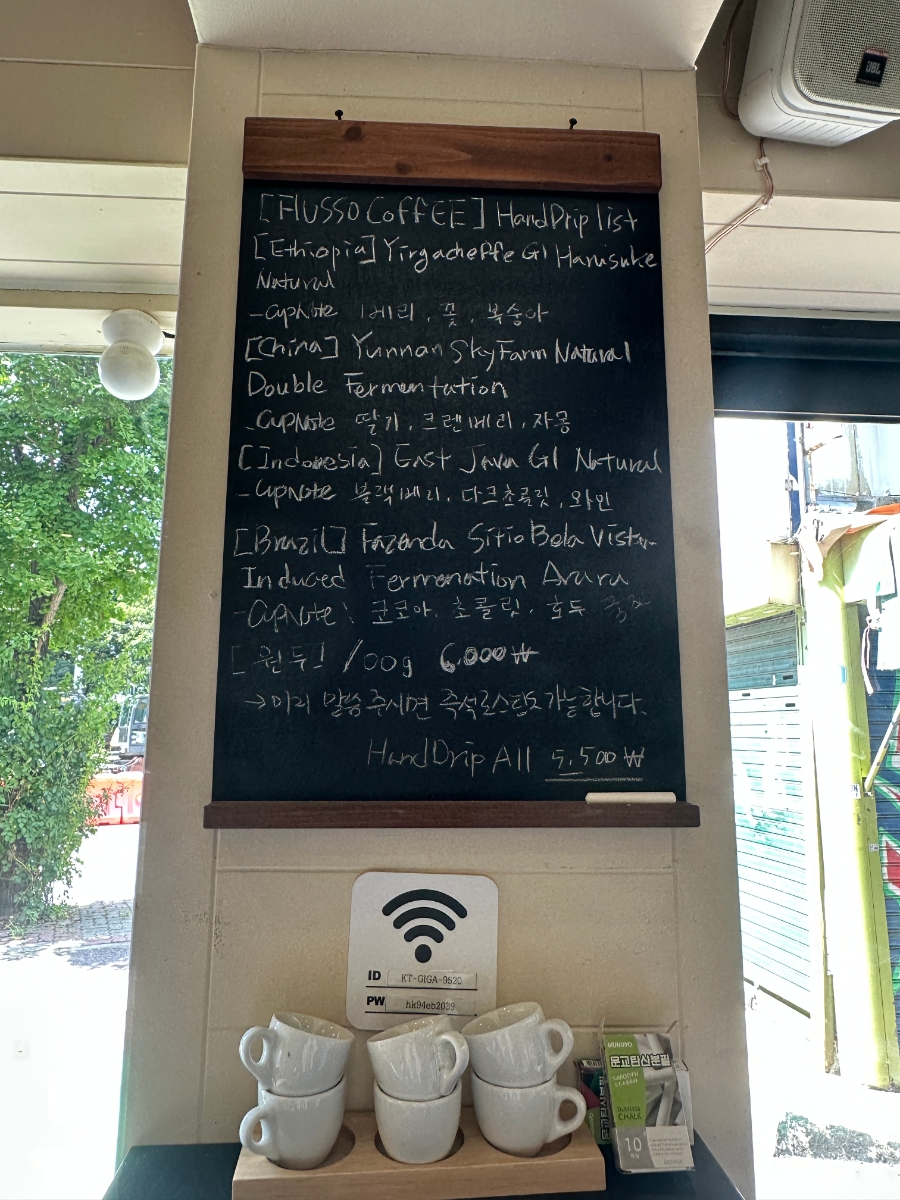 JBL
[FlussO CoffEE] HandDrip list
[Ethiopia] Yirgacheffe G1 Harusuke
Natural
-CupNote 베리, 꽃, 복숭아
[China] Yunnan SkyFarm Natural
Double Fermentation
-CupNote 딸기, 크렌베리, 자몽
[Indonesia] East Java G1 Natural
-CupNote 블랙베리, 다크초콜릿, 와인
[Brazil] Fazenda Sitio Bela Vista
Induced Fermenation Arara
-CupNote: 코코아, 초콜릿, 호두
[원두] 100g 6,000₩
→미리 말씀주시면 즉석로스팅도 가능합니다.
HandDrip All 5,500₩
ID KT-GIGA-9520
PW hk94eb2039
문교탄산분필
CHALK
10